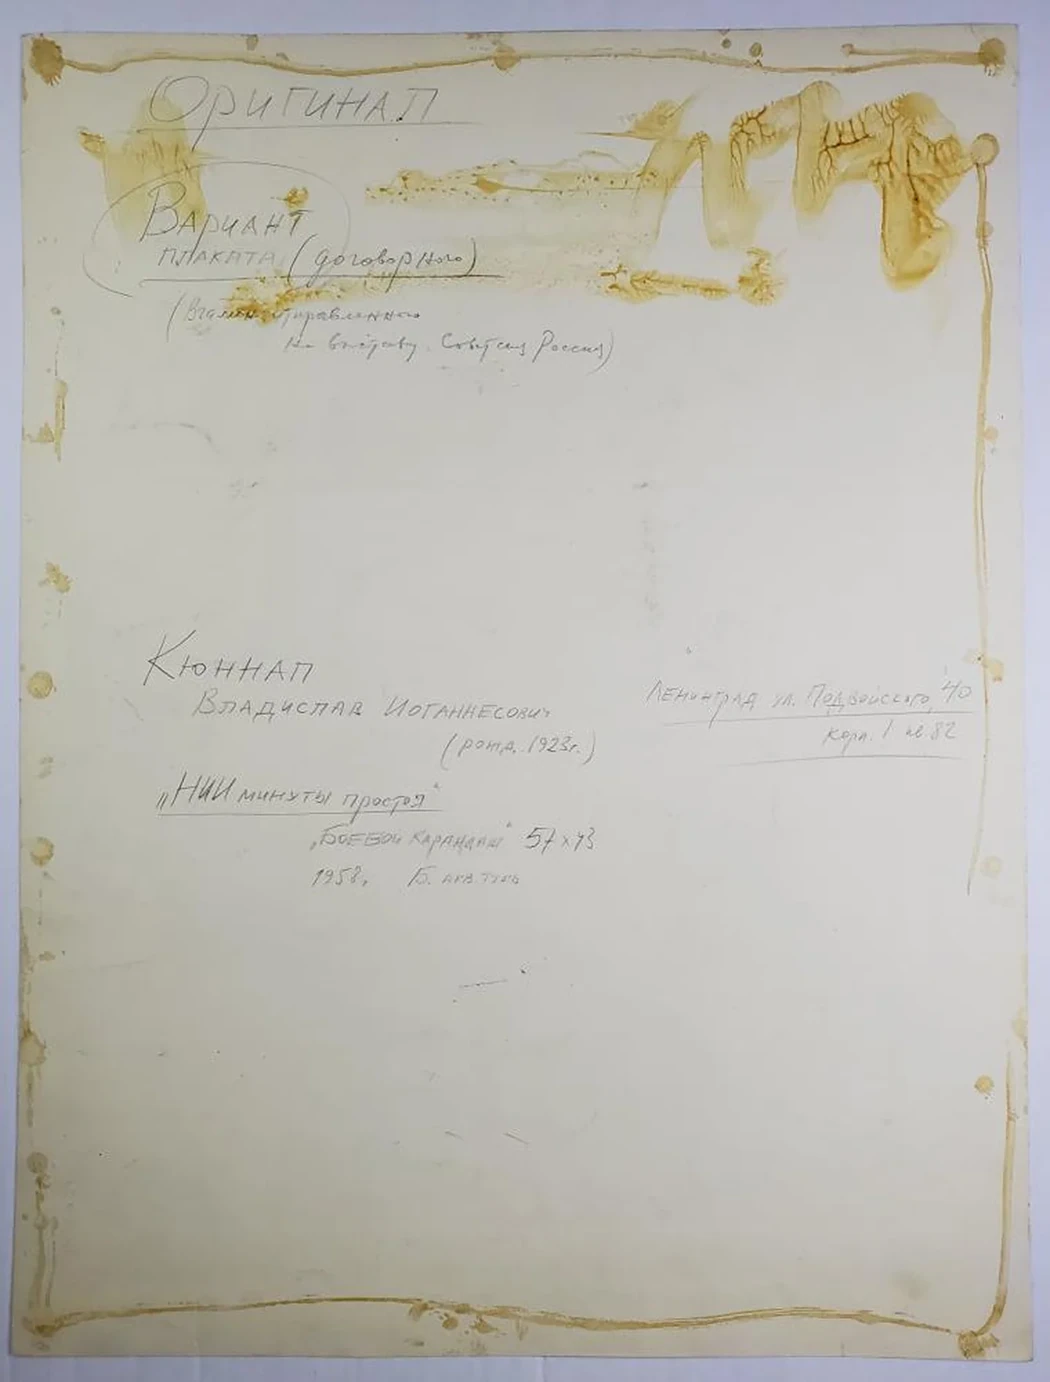 Оригинал
Вариант
плаката (договорного)
(Взамен отправленного
на выставку Советская Россия)
Кюннап
Владислав Иоганнесович
(рожд. 1923г.)
Ленинград ул. Подвойского, 40
корп. 1 кв. 82
„НИИ минуты простоя“
„Боевой карандаш“ 57х43
1958, Б. акв. тушь